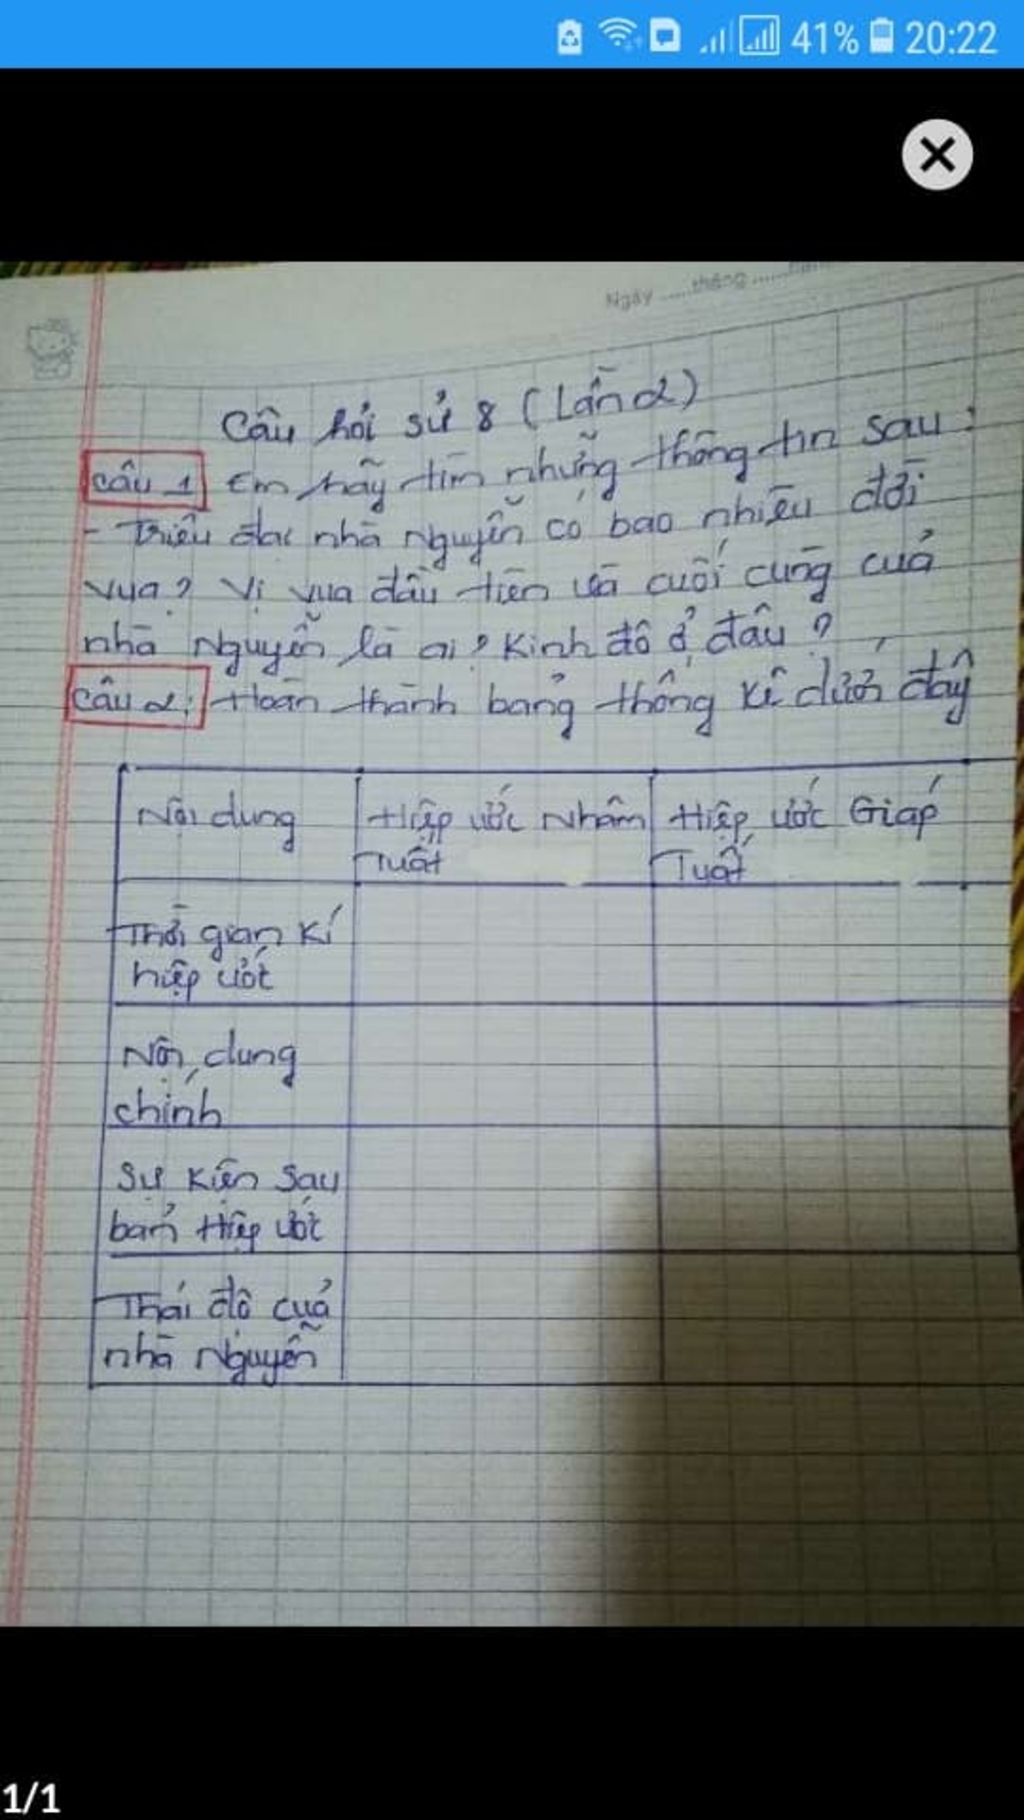 41% 20:22
Ngày ......tháng ......
Câu hỏi sử 8 (Lần 2)
Câu 1 Em hãy tìm những thông tin sau:
- Triều đại nhà Nguyễn có bao nhiêu đời
vua? Vị vua đầu tiên và cuối cùng của
nhà Nguyễn là ai? Kinh đô ở đâu?
Câu 2: Hoàn thành bảng thống kê dưới đây
Nội dung
Hiệp ước Nhâm Tuất
Hiệp ước Giáp Tuất
Thời gian kí
hiệp ước
Nội dung
chính
Sự kiện sau
bản Hiệp ước
Thái độ của
nhà Nguyễn
1/1